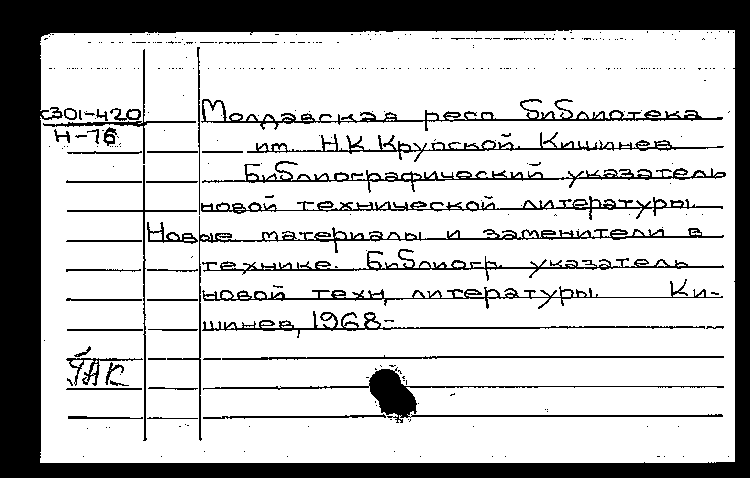 с301-420
Н-76
Молдавская респ библиотека
им. Н.К Крупской. Кишинев
Библиографический указатель
новой технической литературы.
Новые материалы и заменители в
технике. Библиогр. указатель
новой техн, литературы. Ки-
шинев, 1968-